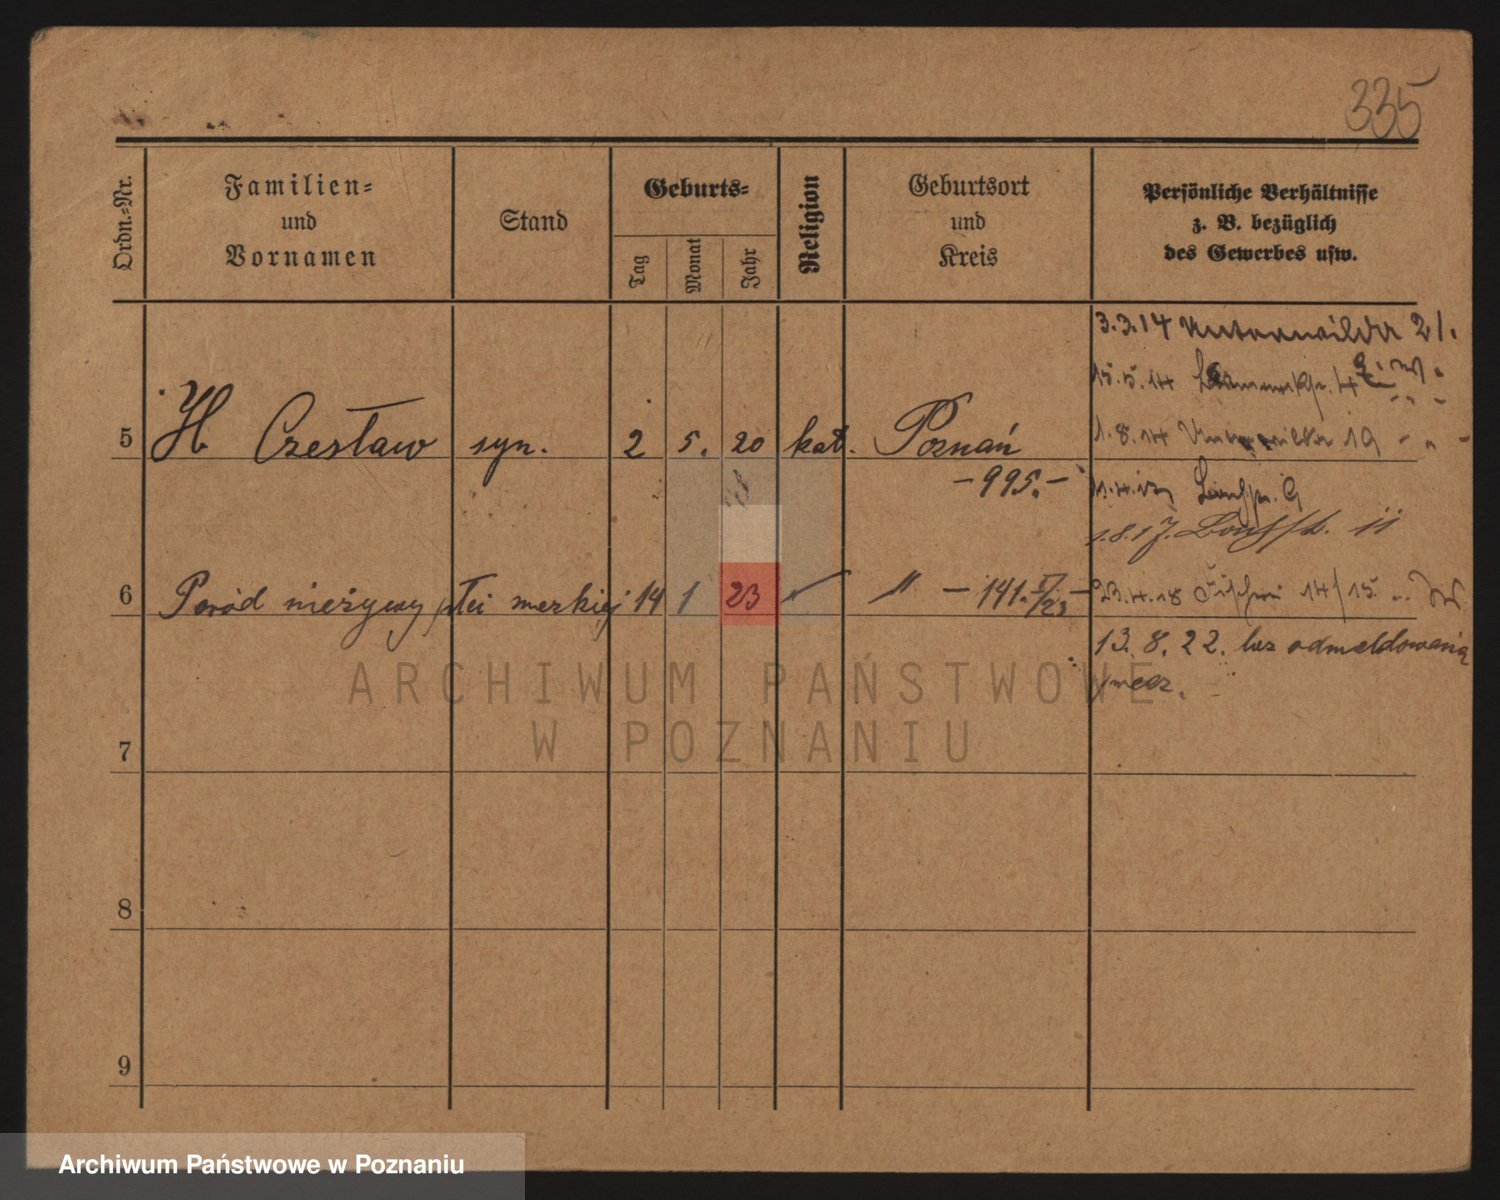 335
Ordn.-Nr.
Familien-
und
Vornamen
Stand
Geburts-
Tag
Monat
Jahr
Religion
Geburtsort
und
Kreis
Persönliche Verhältnisse
z. B. bezüglich
des Gewerbes usw.
3.3.14 Unterwilda 21.
15.5.14
1.8.14 Unterwilda 19 - " -
5 H Czesław syn. 2 5. 20 kat. Poznań
-995.-
9
1.8.17. 11
6 Poród nieżywy płci męskiej 14 1 23 " - 141. I/23 -
23.4.18 14/15
13. 8. 22. bez odmeldowania
7
8
9
ARCHIWUM PAŃSTWOWE
W POZNANIU
Archiwum Państwowe w Poznaniu